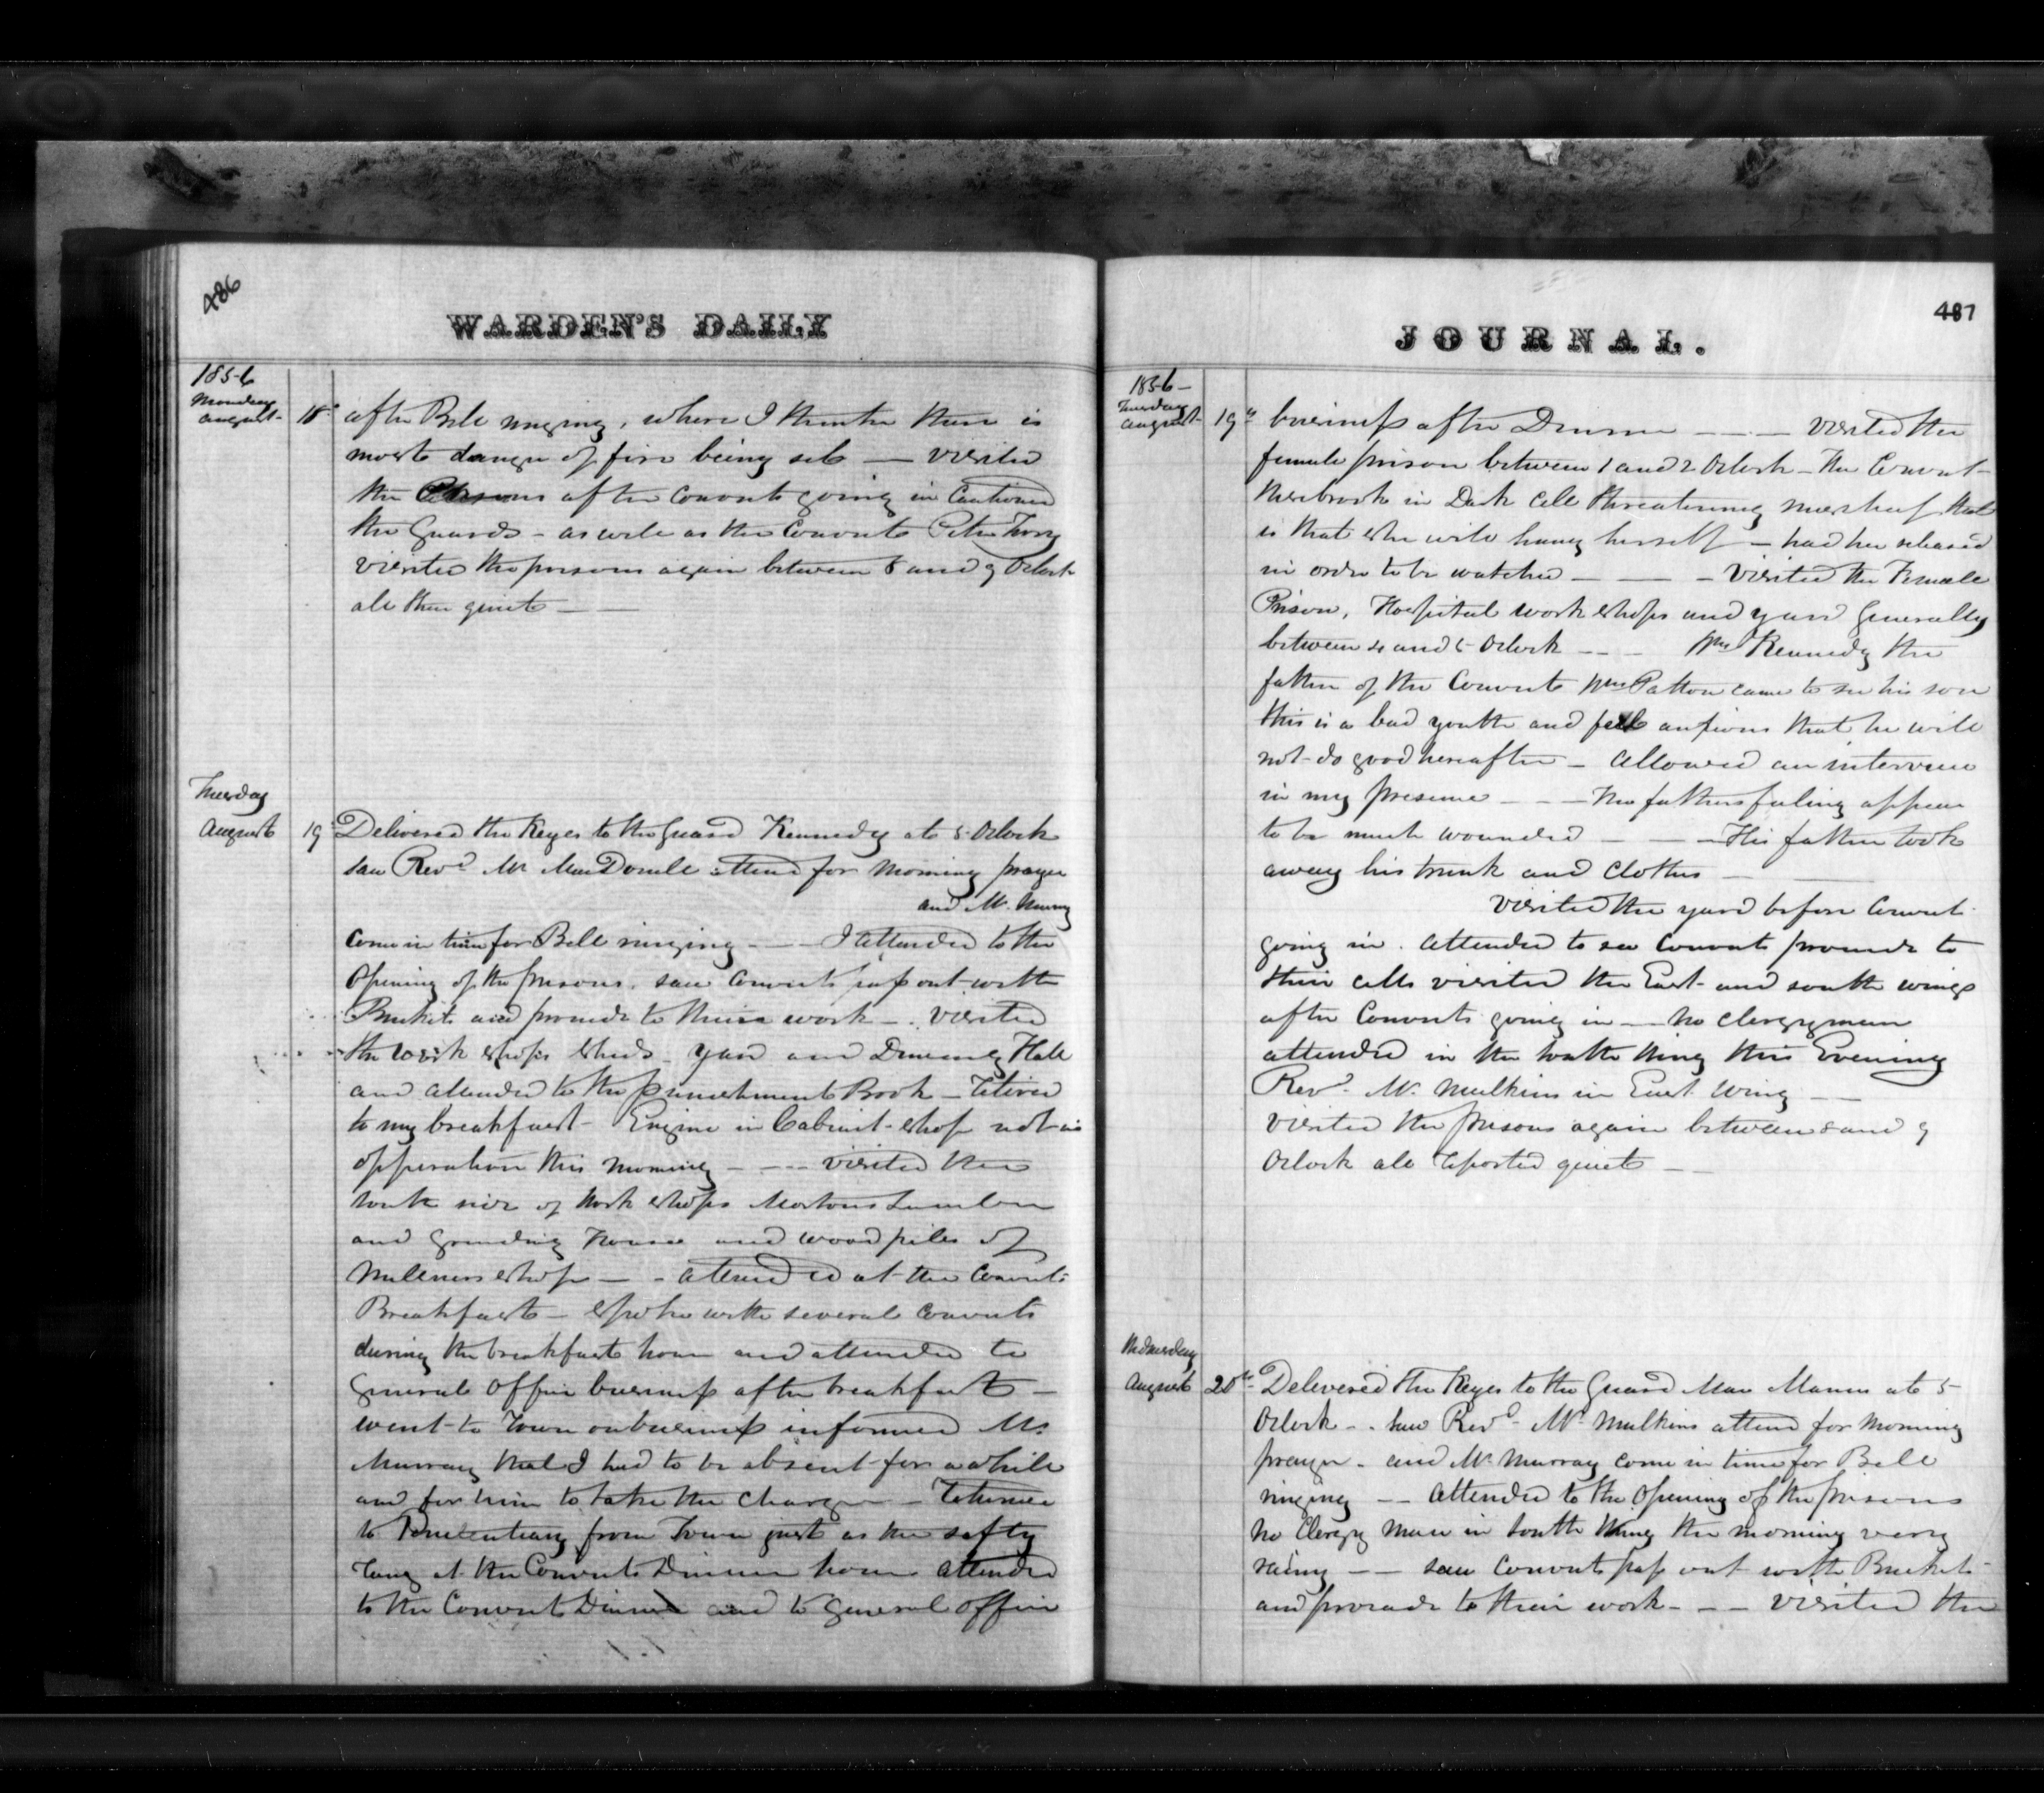 486
WARDEN'S DAILY
1856
Monday
August 18
after Bell ringing, where I think there is
most danger of fire being set — visited
the Prisons after Convicts going in Cautioned
the Guards - as well as the Convict Peter
visited the prisons again between 8 and 9 Oclock
all then quiet —
Tuesday
August 19
Delivered the Keyes to the Guard Kennedy at 5 Oclock
saw Revd Mr MacDonell attend for morning prayer
and Mr. Murray
come in time for Bell ringing - — I attended to the
Opening of the prisons, saw Convicts pass out with
Buckets and proceede to their work - visited
the work shops sheds - yard and Dineing Hall
and attended to the punishment Book - retired
to my breakfast - Engine in Cabinet - shop not in
opperation this morning - - - visited the
south side of work shops Mortons Lumber
and grinding house and wood piles of
shop - - attended at the Convicts
Breakfast - spoke with several Convicts
during the breakfast hour and attended to
General Office buisness after breakfast -
went to Town on buisness informed Mr
Murray that I had to be absent for a while
and for him to take the charge - returned
to Penitentiary from Town just as the safty
rung at the Convicts Dinner hour attended
to the Convict Dinner and to General Office
JOURNAL.
487
1856 -
Tuesday
August 19th
buisness after Dinner - - - visited the
female prison between 1 and 2 Oclock - The Convict
in Dark Cell threatening mischief that
is that she will hang herself - had her released
in order to be watched - - - visited the Female
Prison, Hospital work shops and yard Generally
between 4 and 5 Oclock - - - Kennedy the
father of the Convict Wm Patton came to see his son
this is a bad youth and feel anxious that he will
not do good hereafter - allowed an interview
in my presence - - - the fathers feeling appear
to be much wounded - - - His father took
away his trunk and Clothes -
visited the yard before Convict
going in. attended to see Convicts proceede to
their cells visited the East and south wings
after Convicts going in - no clergyman
attended in the South Wing this Evening
Revd. Mr. Mulkins in East Wing -
visited the prisons again between 8 and 9
Oclock all reported quiet -
Wednesday
August 20th
Delivered the Keyes to the Guard Mac Manus at 5
Oclock - saw Revd Mr Mulkins attend for morning
prayer - and Mr Murray come in time for Bell
ringing - - attended to the Opening of the prisons
no Clergy man in South Wing the morning very
rainy - - saw Convicts pass out with Buckets
and proceede to their work - - - visited the